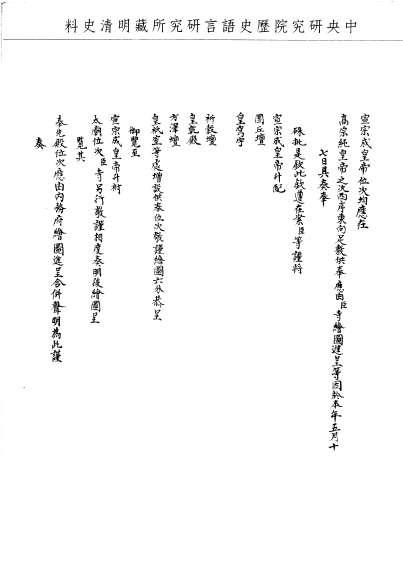 中央研究院歷史語言研究所藏明清史料
宣宗成皇帝位次均應在
高宗純皇帝之次西序東向足敷供奉應由臣等繪圖進呈等因於本年五月十
七日具奏奉
硃批是欽此欽遵在案臣等謹將
宣宗成皇帝升配
圜丘壇
皇穹宇
祈穀壇
皇乾殿
方澤壇
皇祇室等處增設供奉位次敬謹繪圖六分恭呈
御覽至
宣宗成皇帝升祔
太廟位次臣等另行敬謹相度奏明後繪圖呈
覽其
奉先殿位次應由內務府繪圖進呈合併聲明為此謹
奏